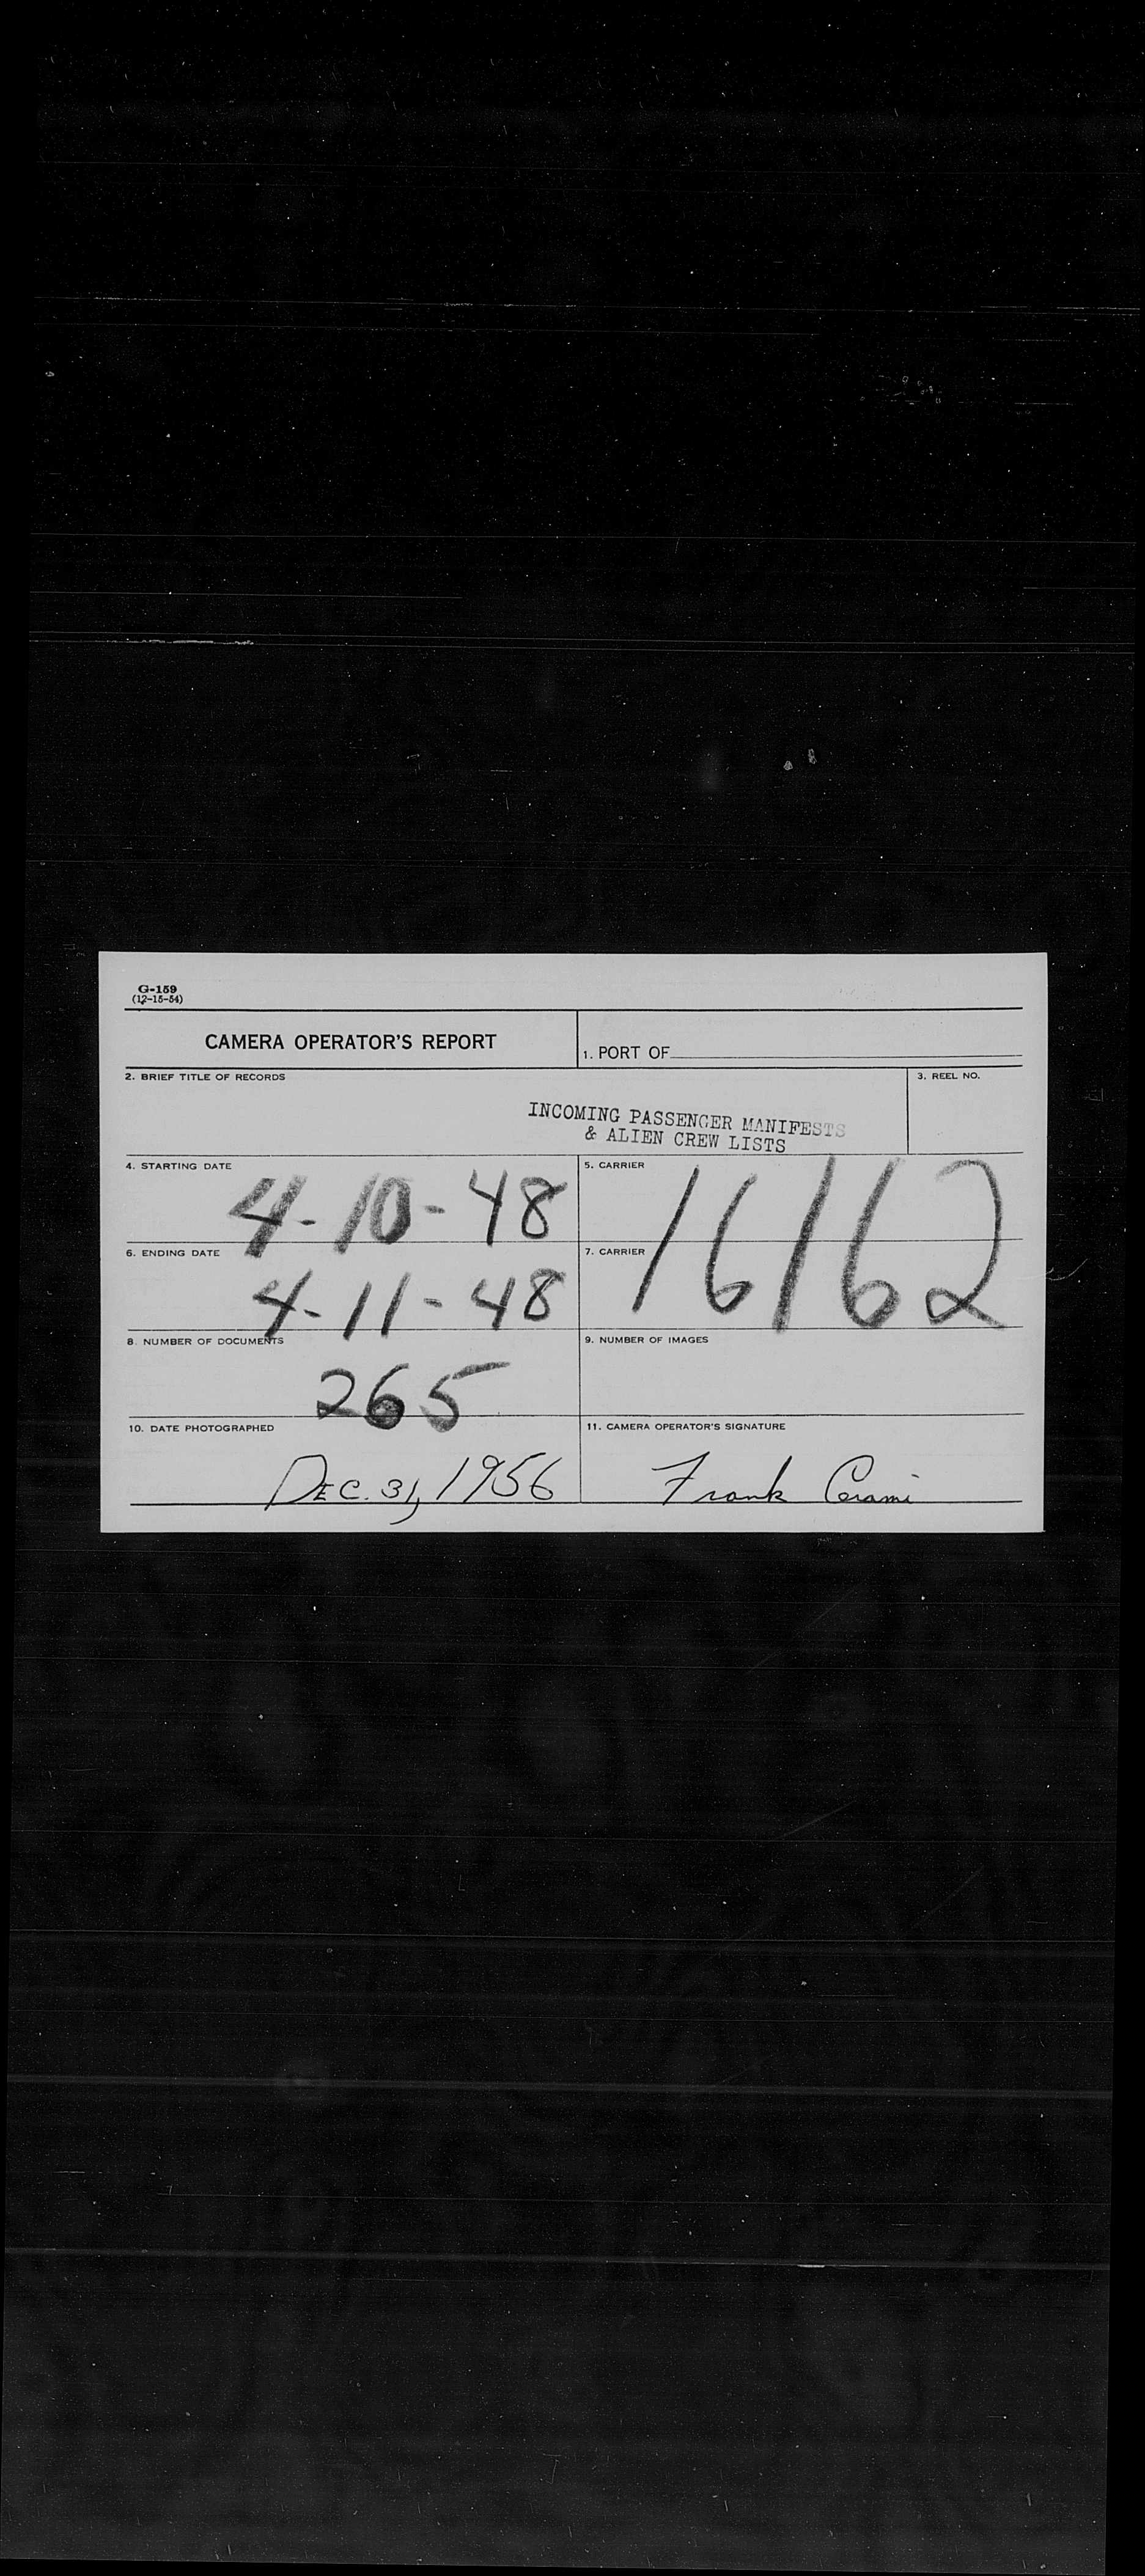 G-159
(12-15-54)
CAMERA OPERATOR'S REPORT
1. PORT OF
2. BRIEF TITLE OF RECORDS
3. REEL NO.
INCOMING PASSENGER MANIFESTS
& ALIEN CREW LISTS
4. STARTING DATE
4-10-48
5. CARRIER
16162
6. ENDING DATE
4-11-48
7. CARRIER
8. NUMBER OF DOCUMENTS
265
9. NUMBER OF IMAGES
10. DATE PHOTOGRAPHED
DEC. 31, 1956
11. CAMERA OPERATOR'S SIGNATURE
Frank Cerami